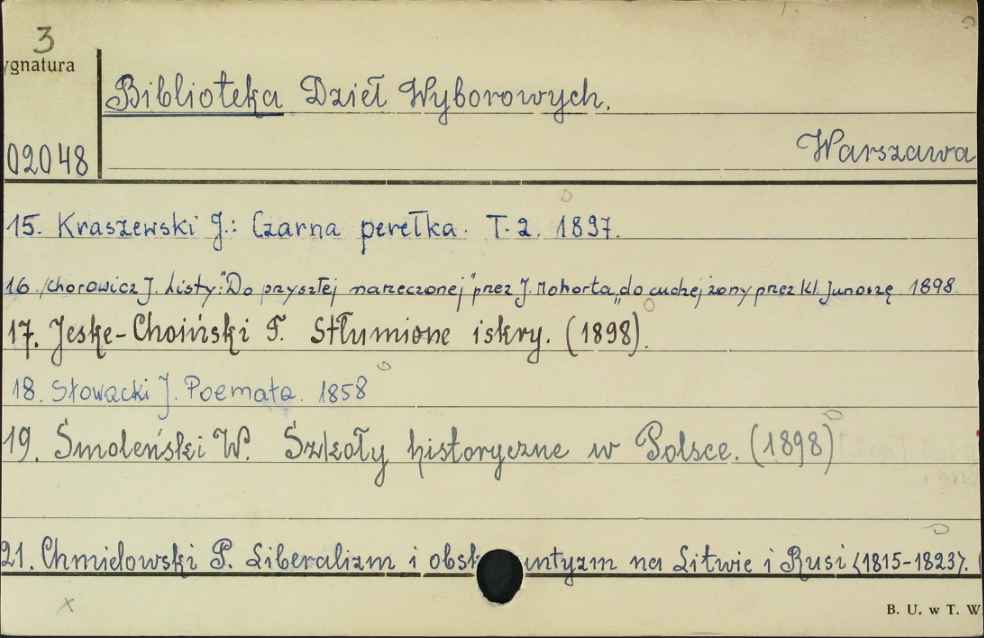 3
ygnatura
Biblioteka Dzieł Wyborowych.
02048
Warszawa
15. Kraszewski J.: Czarna perełka. T. 2. 1897.
16. /chorowicz J. Listy: "Do przyszłej narzeczonej" prez J. Mohorta, „do cudzej żony prez Kl. Junoszę. 1898.
17. Jeske-Choiński T. Stłumione iskry. (1898).
18. Słowacki J. Poemata. 1858
19. Smoleński W. Szkoły historyczne w Polsce. (1898)
21. Chmielowski P. Liberalizm i obsk untyzm na Litwie i Rusi (1815-1823). (
x
B. U. w T. W